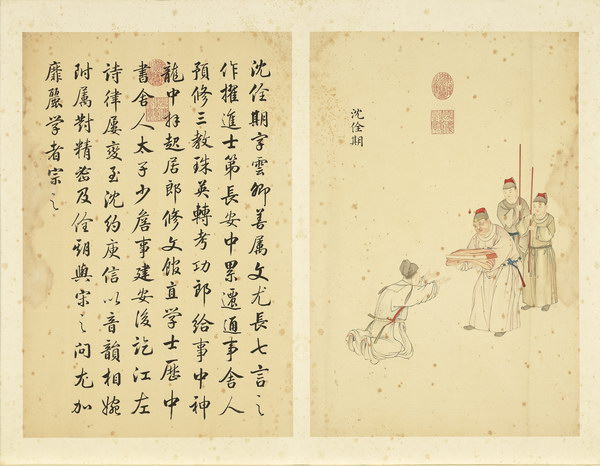 沈佺期
沈佺期字雲卿善属文尤長七言之
作擢進士第長安中累遷通事舍人
預修三教珠英轉考功郎給事中神
龍中拜起居郎修文館直学士歷中
書舍人太子少詹事建安後訖江左
詩律屢變至沈約庾信以音韻相婉
附属對精密及佺期與宋之问尤加
靡麗学者宗之